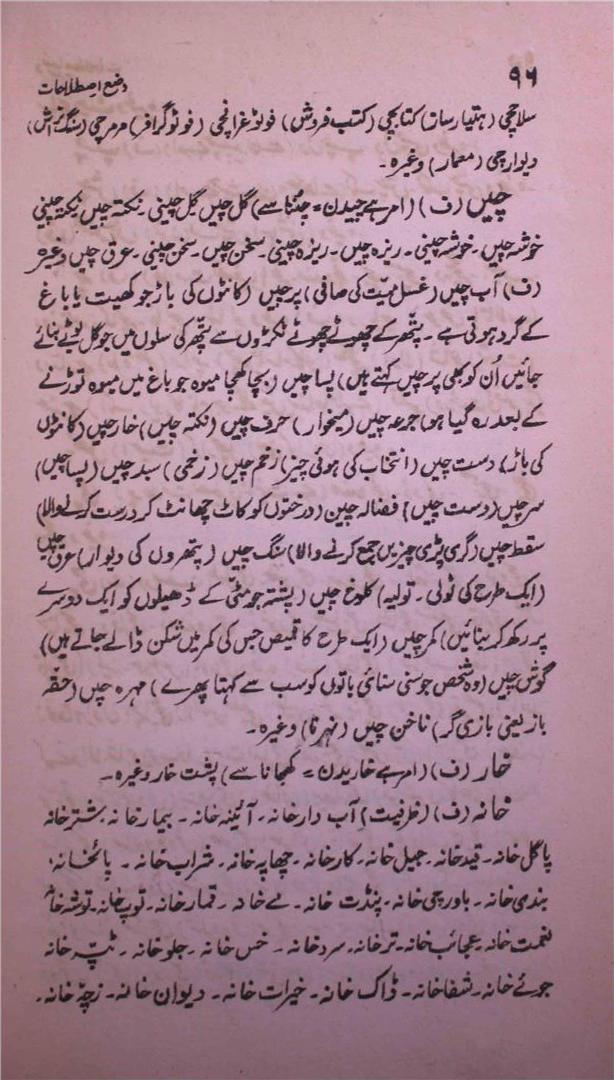 ۹۶
وضع اصطلاحات
سلاحچی (ہتیار ساز) کتابچی (کتب فروش) فوٹوغرافچی (فوٹوگرافر) مرمرچی (سنگ تراش)
دیوارچی (معمار) وغیرہ۔
چیں (ف) (امر ہے چیدن = چُننا سے) گل چیں گل چینی۔ نکتہ چیں نکتہ چینی
خوشہ چیں۔ خوشہ چینی۔ ریزہ چیں۔ ریزہ چینی۔ سخن چیں۔ سخن چینی۔ عرق چیں وغیرہ
(ف) آب چیں (غسل میّت کی صافی) پرچیں (کانٹوں کی باڑ جو کھیت یا باغ
کے گرد ہوتی ہے۔ پتھر کے چھوٹے چھوٹے ٹکڑوں سے پتھر کی سلوں میں جو گل بوٹے بنائے
جائیں اُن کو بھی پرچیں کہتے ہیں) پسا چیں (بچا کھچا میوہ جو باغ میں میوہ توڑنے
کے بعد رہ گیا ہو) جرعہ چیں (میخوار) حرف چیں (نکتہ چیں) خارچیں (کانٹوں
کی باڑ) دست چیں (انتخاب کی ہوئی چیز) زخم چیں (زخمی) سبد چیں (پسا چیں)
سرچیں (دست چیں) فضالہ چین (درختوں کو کاٹ چھانٹ کر درست کرنے والا)
سقط چیں (گری پڑی چیزیں جمع کرنے والا) سنگ چیں (پتھروں کی دیوار) عرق چیں
(ایک طرح کی ٹوپی۔ تولیہ) کلوخ چیں (پشتہ جو مٹی کے ڈھیلوں کو ایک دوسرے
پر رکھ کر بنائیں) کمرچیں (ایک طرح کا قمیص جس کی کمر میں شکن ڈالے جاتے ہیں)
گوش چیں (وہ شخص جو سنی سنائی باتوں کو سب سے کہتا پھرے) مہرہ چیں (حقہ
باز یعنی بازی گر) ناخن چیں (نہرنا) وغیرہ۔
خار (ف) (امر ہے خاریدن = کھجانا سے) پشت خار وغیرہ۔
خانہ (ف) (ظرفیت) آب دار خانہ۔ آئینہ خانہ۔ بیمار خانہ شتر خانہ
پاگل خانہ۔ قید خانہ۔ جیل خانہ۔ کارخانہ۔ چھاپہ خانہ۔ شراب خانہ۔ پائخانہ۔
بندی خانہ۔ باورچی خانہ۔ پنڈت خانہ۔ مے خانہ۔ قمار خانہ۔ توپ خانہ۔ توشہ خانہ
نعمت خانہ۔ عجائب خانہ۔ تر خانہ۔ سرد خانہ۔ خس خانہ۔ جلو خانہ۔ ٹپّہ خانہ
جوئے خانہ۔ شفا خانہ۔ ڈاک خانہ۔ خیرات خانہ۔ دیوان خانہ۔ زچہ خانہ۔